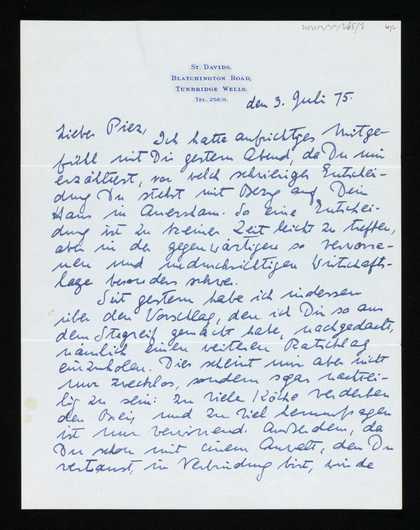 St. Davids,
Blatchington Road,
Tunbridge Wells.
den 3. Juli 75.
Lieber Piez,
Ich hatte aufrichtiges Mitge-
fühl mit Dir gestern Abend, da Du mir
erzähltest, vor welch schwieriger Entschei-
dung Du stehst mit Bezug auf Dein
Haus in Amersham. So eine Entschei-
dung ist zu keiner Zeit leicht zu treffen,
aber in der gegenwärtigen so verworre-
nen und undurchsichtigen Wirtschafts-
lage besonders schwer.
Seit gestern habe ich indessen
über den Vorschlag, den ich Dir so aus
dem Stegreif gemacht habe, nachgedacht,
nämlich einen weiteren Ratschlag
einzuholen. Dies scheint mir aber nicht
nur zwecklos, sondern sogar nachtei-
lig zu sein: zu viele Köche verderben
den Brei, und zu viel herumfragen
ist nur verwirrend. Außerdem, da
Du schon mit einem Anwalt, dem Du
vertraust, in Verbindung bist, würde